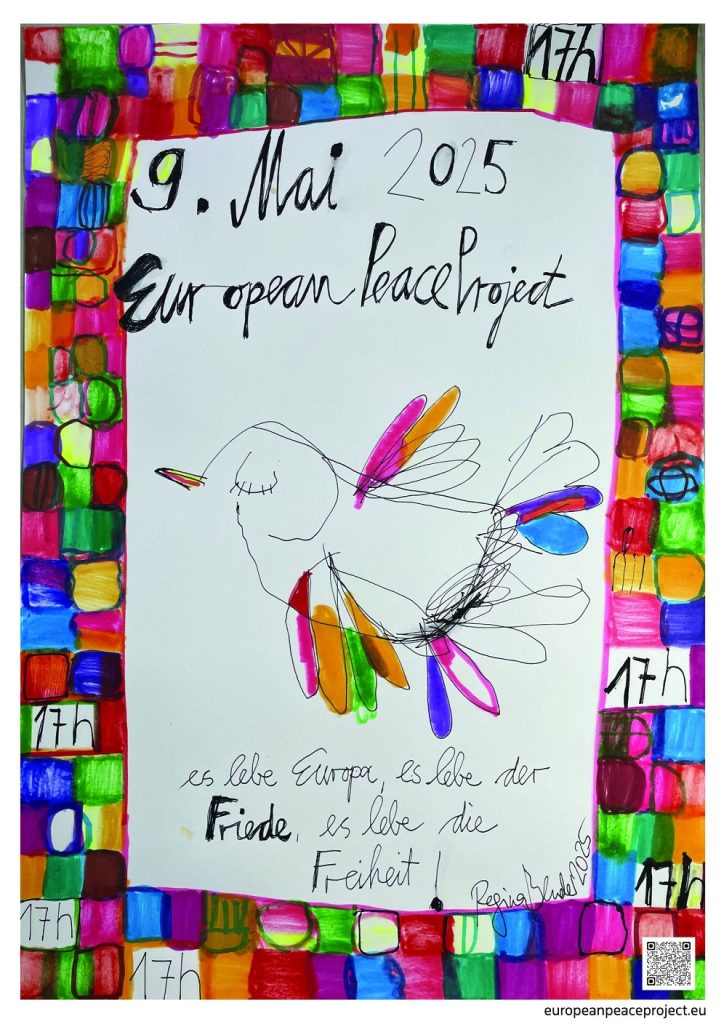 17h
9. Mai 2025
European Peace Project
17h
17h
es lebe Europa, es lebe der
Friede, es lebe die
Freiheit!
Regina Bender 2025
17h
17h
17h
europeanpeaceproject.eu